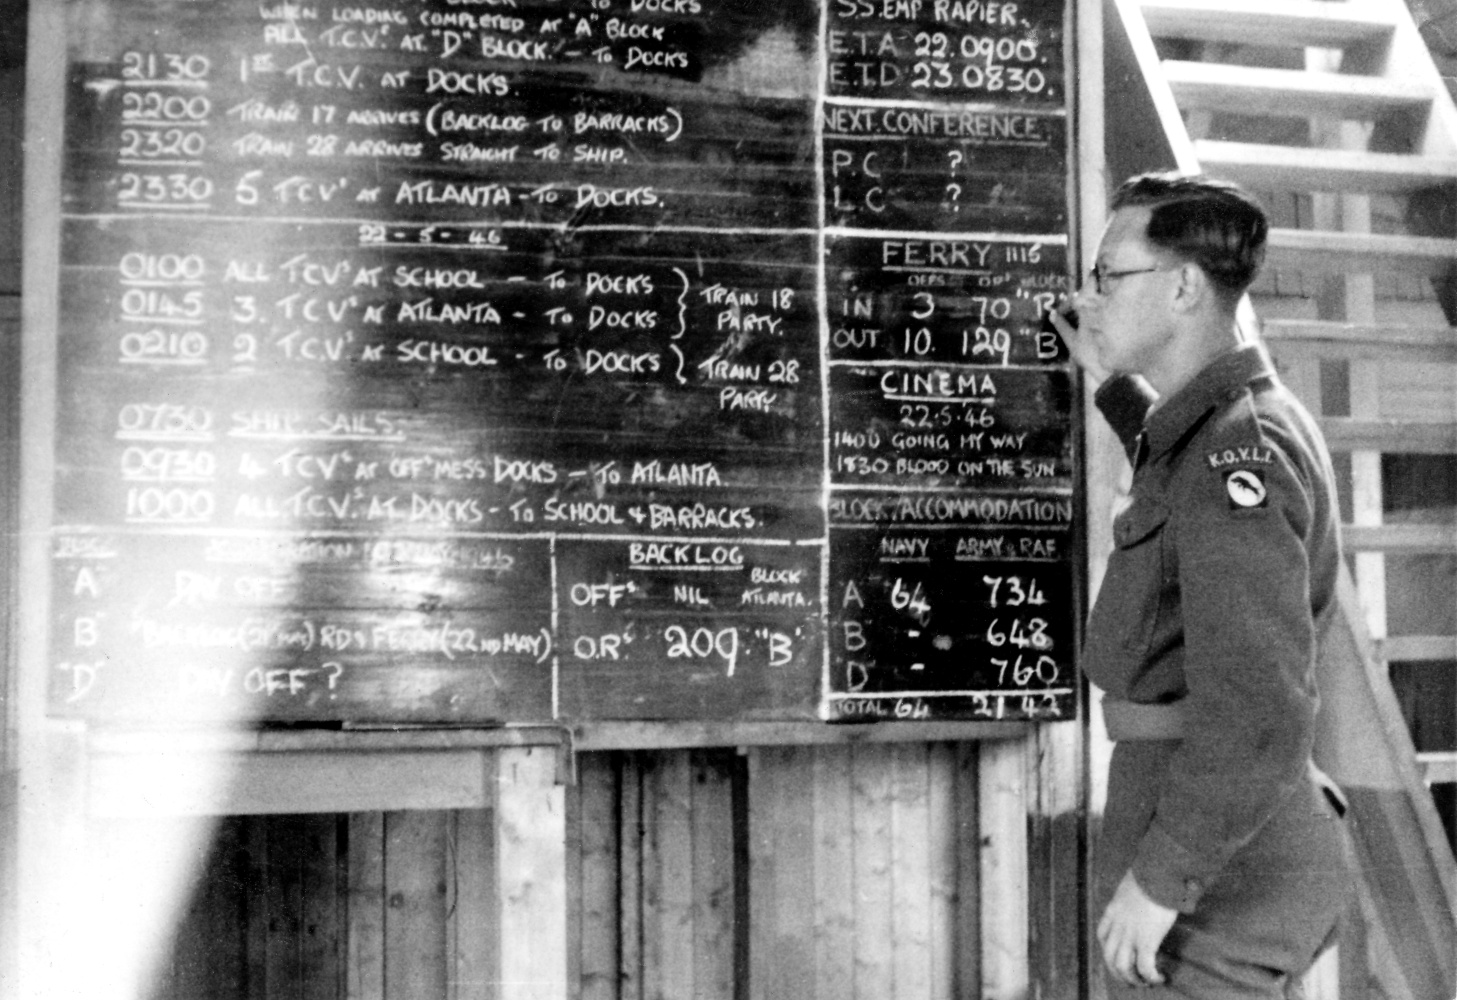 TO DOCKS
WHEN LOADING COMPLETED AT "A" BLOCK
ALL T.C.V.s AT "D" BLOCK. - TO DOCKS
2130 1ST T.C.V. AT DOCKS.
2200 TRAIN 17 ARRIVES (BACKLOG TO BARRACKS)
2320 TRAIN 28 ARRIVES STRAIGHT TO SHIP.
2330 5 TCVs AT ATLANTA - TO DOCKS.
22 - 5 - 46
0100 ALL TCVs AT SCHOOL - TO DOCKS
0145 3. TCVs AT ATLANTA - TO DOCKS
TRAIN 18
PARTY.
0210 2 T.C.V.s AT SCHOOL - TO DOCKS
TRAIN 28
PARTY
0730 SHIP SAILS.
0930 4 TCVs AT OFFs MESS DOCKS - TO ATLANTA.
1000 ALL T.C.V.s AT DOCKS - TO SCHOOL & BARRACKS.
"A" DAY OFF
"B" BACKLOG (21 MAY) RD & FERRY (22 ND MAY)
"D" DAY OFF ?
BACKLOG
BLOCK
OFFs NIL ATLANTA.
O.Rs 209. "B"
S.S. EMP RAPIER.
E.T.A 22.0900.
E.T.D 23.0830.
NEXT. CONFERENCE.
P.C ?
L.C ?
FERRY 1115
OFFS ORs BLOCK
IN 3 70 "B"
OUT 10. 129 "B
CINEMA
22.5.46
1400 GOING MY WAY
1830 BLOOD ON THE SUN
BLOCK ACCOMMODATION
NAVY ARMY & RAF
A 64 734
B - 648
D - 760
TOTAL 64 2142
K.O.Y.L.I.